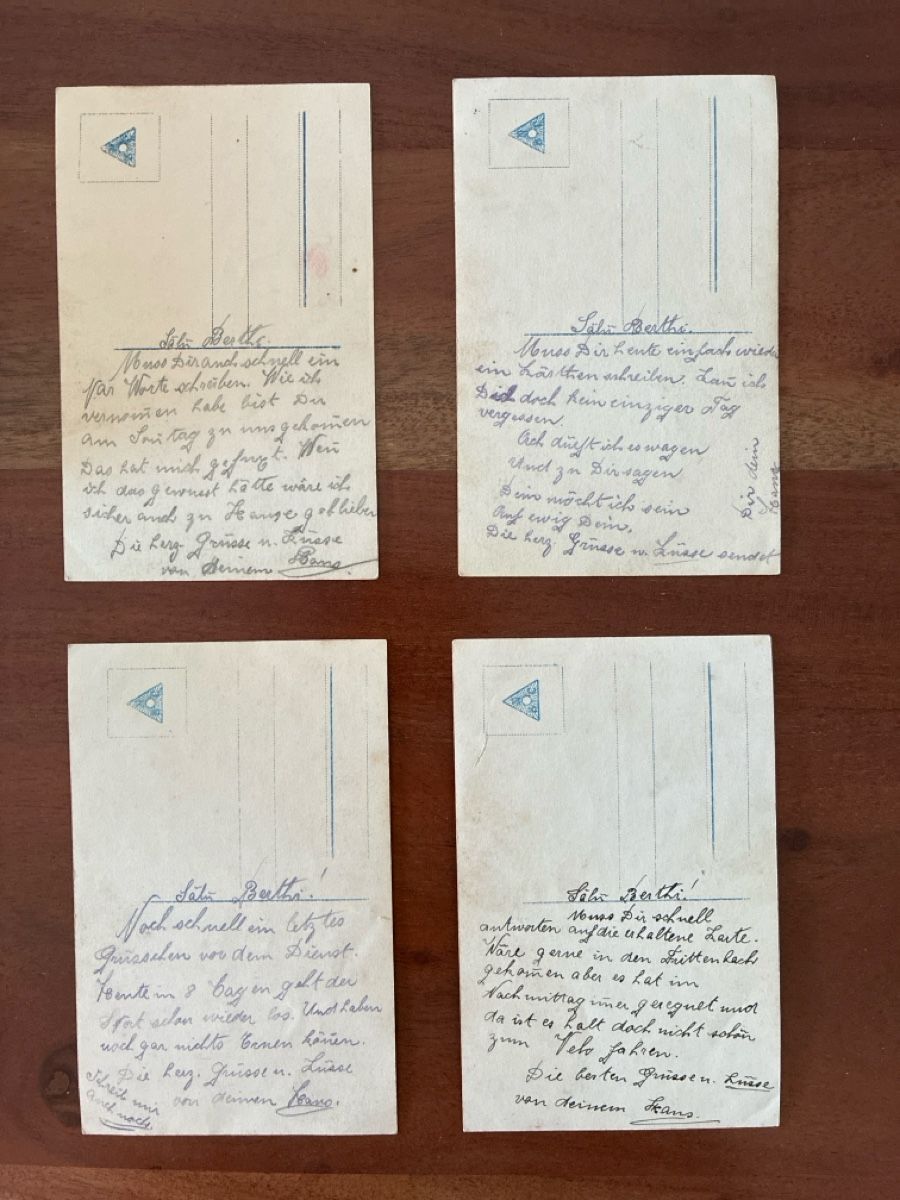 Sälü Berthi.
Muss Dir auch schnell ein
Par Worte schreiben. Wie ich
vernom̄en habe bist Du
am Son̄tag zu uns gekom̄en
Das hat mich gefuxt. Wen̄
ich das gewusst hätte wäre ich
sicher auch zu Hause geblieben
Die herz. Grüsse u. Küsse
von deinem Hans.
Sälü Berthi.
Muss Dir heute einfach wieder
ein Kärtchen schreiben. Kan̄ ich
Dich doch kein einziger Tag
vergessen.
Ach dürft ich es wagen
Und zu Dir sagen
Dein möcht ich sein
Auf ewig Dein.
Die herz. Grüsse u. Küsse sendet
Dir dein
Hans
Sälü Berthi!
Noch schnell ein letztes
Grüsschen vor dem Dienst.
Heute in 8 Tagen geht der
schon wieder los. Und haben
noch gar nichts kön̄en.
Die herz. Grüsse u. Küsse
von deinem Hans.
Schreib mir
auch noch
Sälü Berthi!
Muss Dir schnell
antworten auf die erhaltene Karte.
Wäre gerne in den
gekom̄en aber es hat im
Nachmittag im̄er geregnet und
da ist es halt doch nicht schön
zum Velo fahren.
Die besten Grüsse u. Küsse
von deinem Hans.